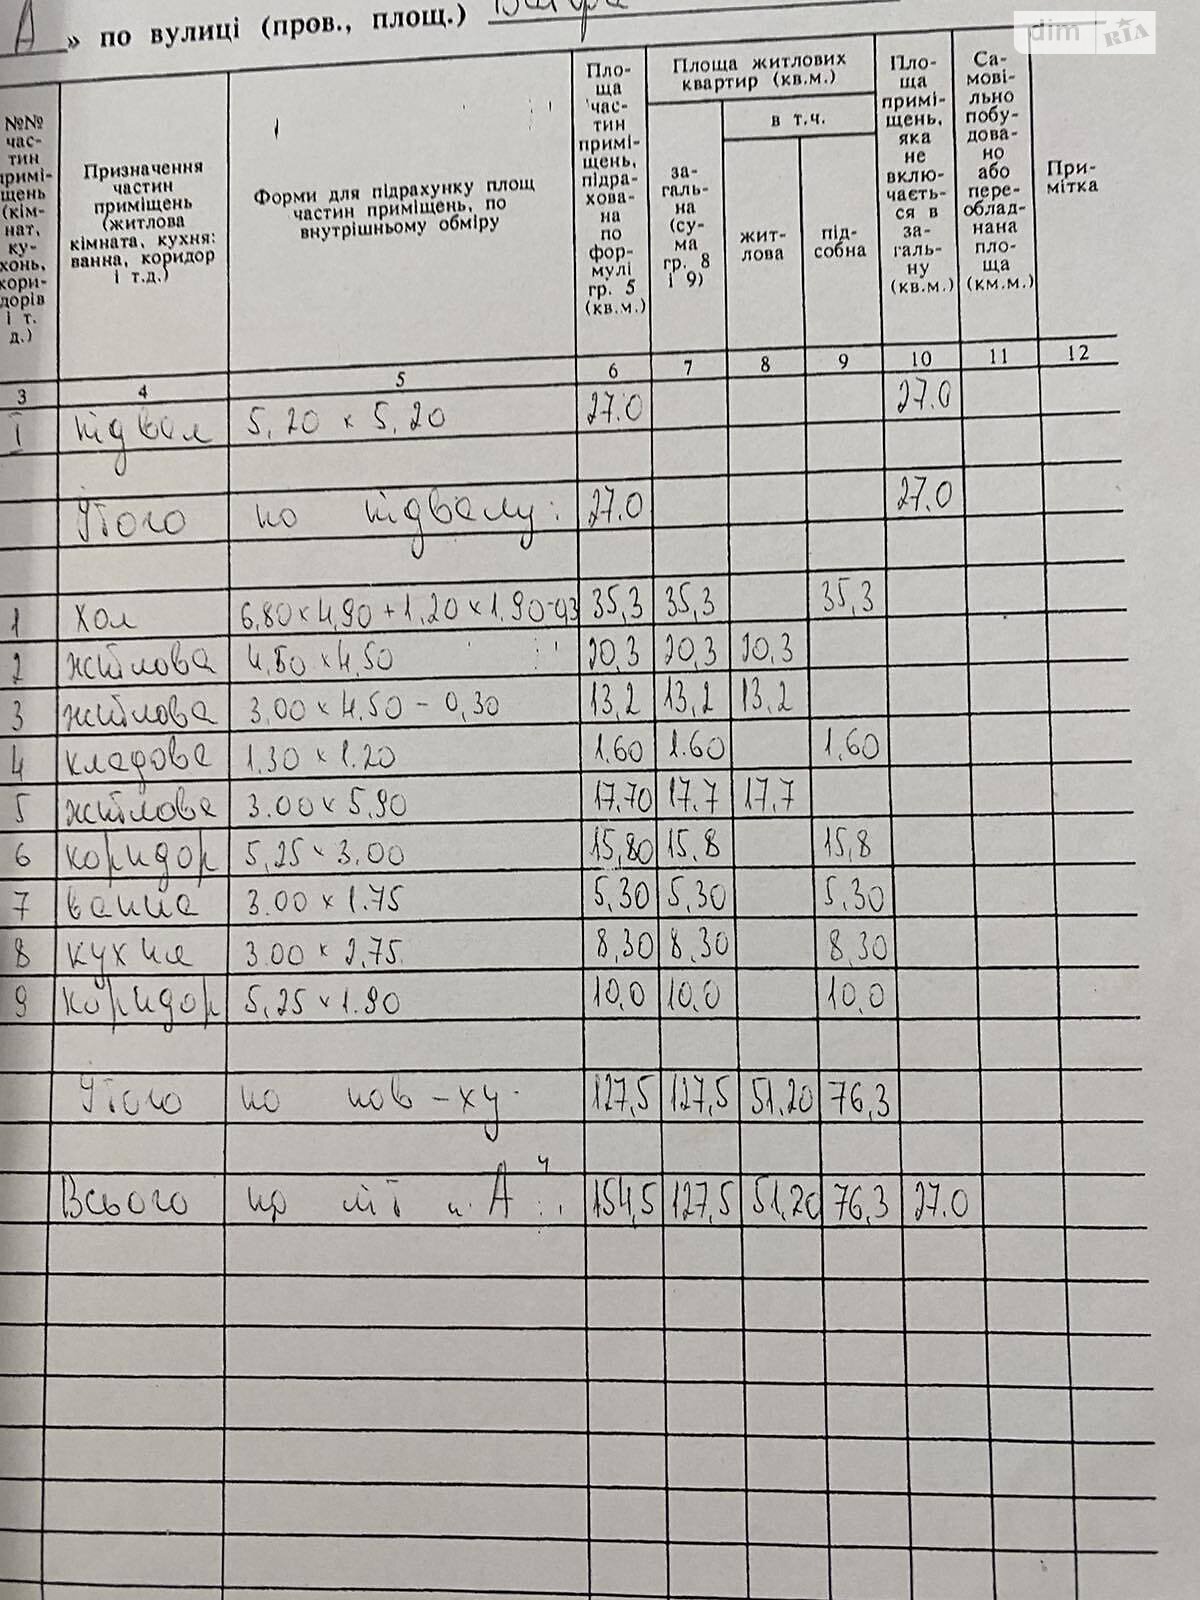 А » по вулиці (пров., площ.)
dim RIA
№№ час- тин примі- щень (кім- нат, ку- хонь, кори- дорів і т. д.)
Призначення частин приміщень (житлова кімната, кухня: ванна, коридор і т.д.)
Форми для підрахунку площ частин приміщень, по внутрішньому обміру
Пло- ща час- тин примі- щень, підра- хова- на по фор- мулі гр. 5 (кв.м.)
Площа житлових квартир (кв.м.)
за- галь- на (су- ма гр. 8 і 9)
в т.ч.
жит- лова
під- собна
Пло- ща примі- щень, яка не вклю- чаєть- ся в за- галь- ну (кв.м.)
Са- мові- льно побу- дова- но або пере- облад- нана пло- ща (км.м.)
При- мітка
3 4 5 6 7 8 9 10 11 12
I підвал 5,20 х 5,20 27.0 27.0
Итого по підвалу: 27.0 27.0
1 хол 6,80х4,90+1,20х1,90-0,3 35,3 35,3 35,3
2 житлова 4,50х4,50 20,3 20,3 20,3
3 житлова 3.00х4.50 - 0,30 13,2 13,2 13,2
4 кладова 1.30х1.20 1.60 1.60 1,60
5 житлова 3.00х5,90 17.70 17.7 17,7
6 коридор 5,25х3.00 15,80 15,8 15,8
7 ванна 3.00х1.75 5,30 5,30 5,30
8 кухня 3.00х2,75. 8,30 8,30 8,30
9 коридор 5,25х1.90 10,0 10,0 10,0
Итого по пов-ху 127,5 127,5 51,20 76,3
Всього пр літ "А" : 154,5 127,5 51,20 76,3 27.0